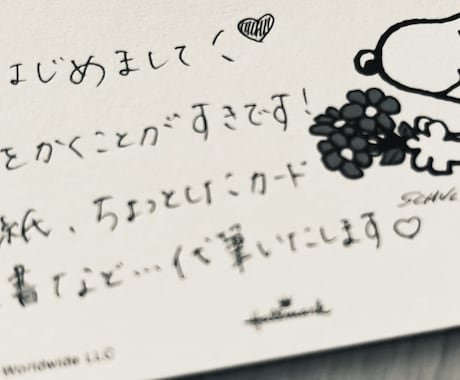 はじめまして
をかくことがすきです!
紙、ちょっとしたカード
書など…代筆いたします♡
SCHUL
Hallmark
Worldwide LLC